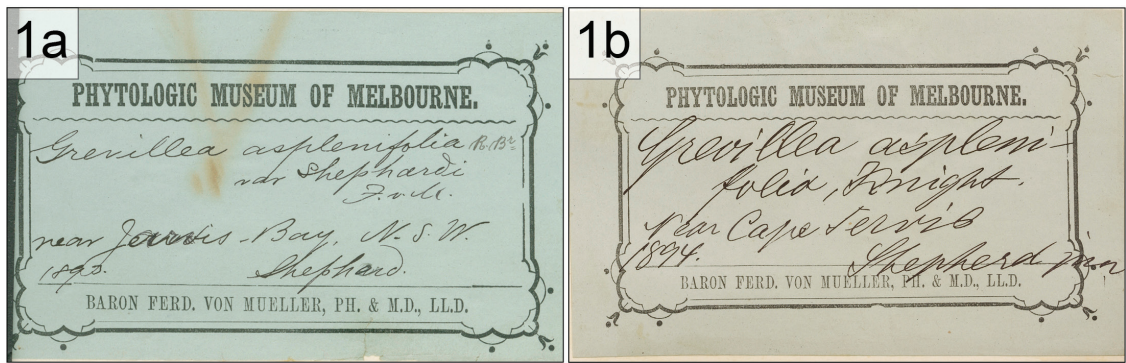 1a
PHYTOLOGIC MUSEUM OF MELBOURNE.
Grevillea asplenifolia R. Br.
var Shephardi
F.v.M.
near Jervis Bay, N. S. W.
1890. Shephard.
BARON FERD. VON MUELLER, PH. & M.D., LL.D.
1b
PHYTOLOGIC MUSEUM OF MELBOURNE.
Grevillea aspleni-
folia, Knight.
Near Cape Jervis
1894. Shepherd jun
BARON FERD. VON MUELLER, PH. & M.D., LL.D.